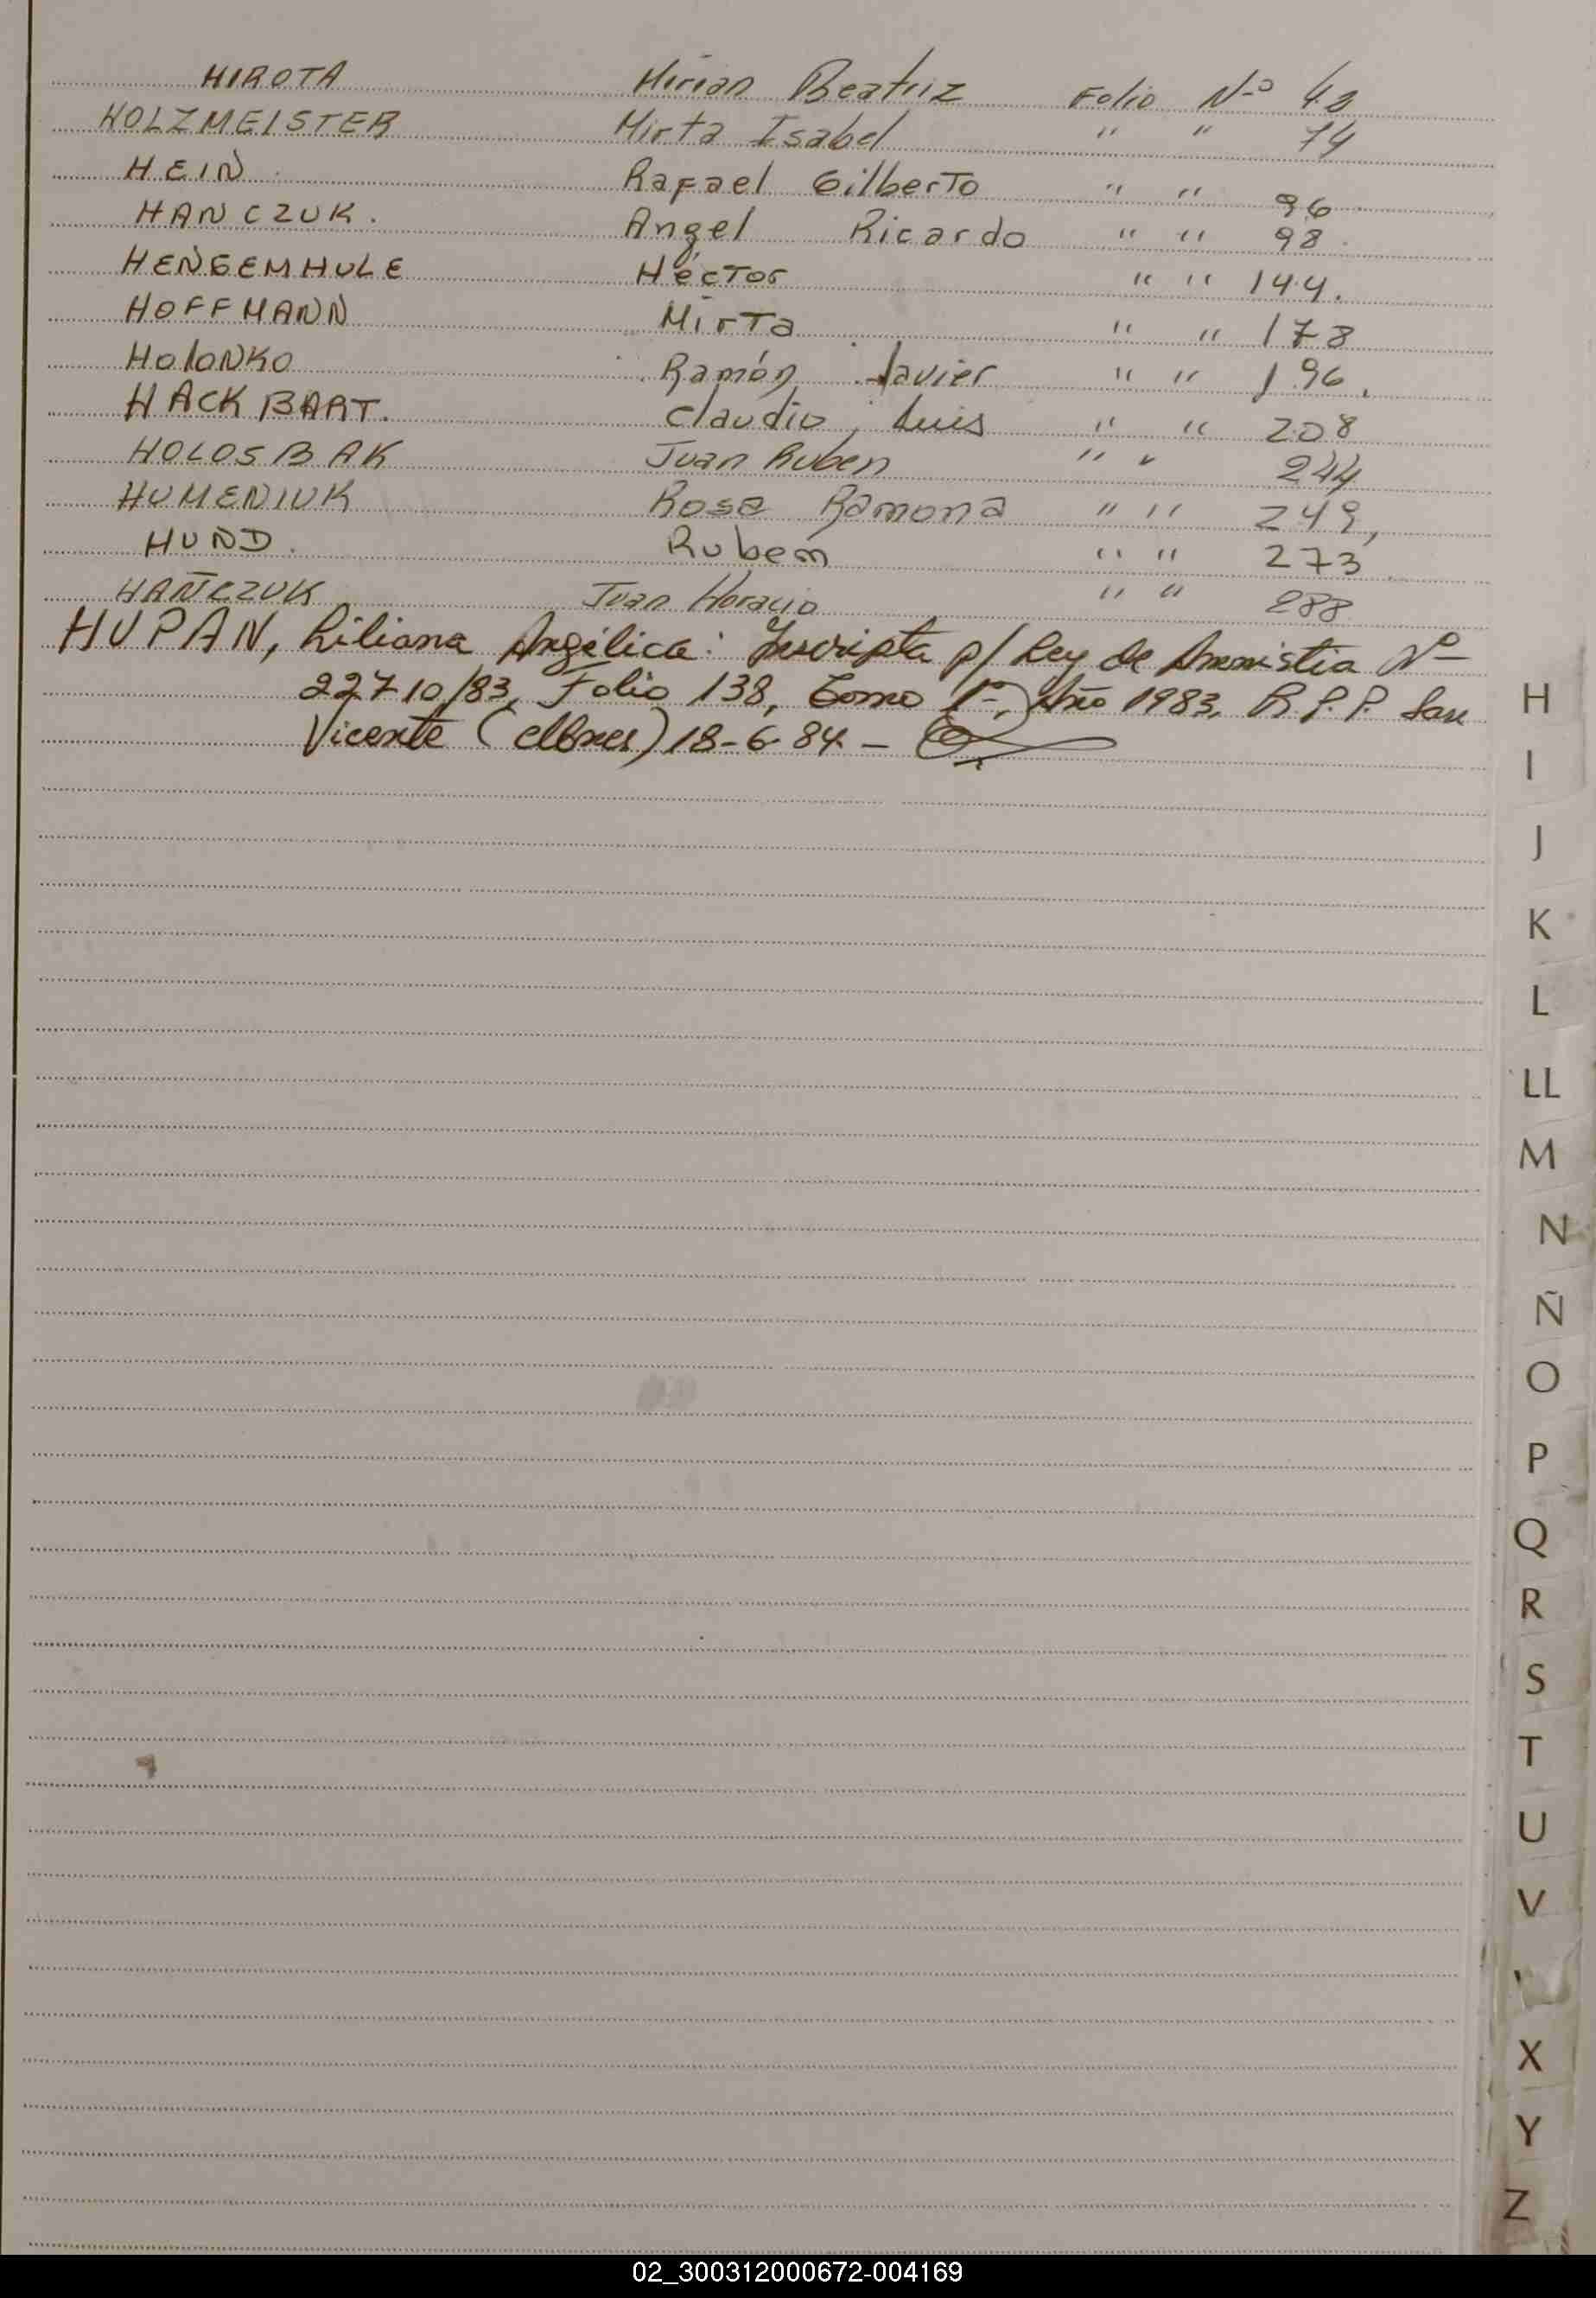 HIROTA Mirian Beatriz Folio Nº 42
HOLZMEISTER Mirta Isabel " " 74
HEIN. Rafael Gilberto " " 96
HANCZUK. Angel Ricardo " " 98.
HENGEMHULE Héctor " " 144.
HOFFMANN Mirta " " 178
HOLONKO Ramón Javier " " 196.
HACKBART. Claudio Luis " " 208
HOLOSBAK Juan Ruben " " 244
HUMENIUK Rosa Ramona " " 249,
HUND. Rubem " " 273
HAÑCZUK Juan Horacio " " 288
HUPAN, Liliana Angélica: Inscripta p/ Ley de Amnistia Nº
22710/83, Folio 138, Tomo 1º, Año 1983, R.P.P. San
Vicente (Mnes) 18-6-84 -
H
I
J
K
L
LL
M
N
Ñ
O
P
Q
R
S
T
U
V
X
Y
Z
02_300312000672-004169